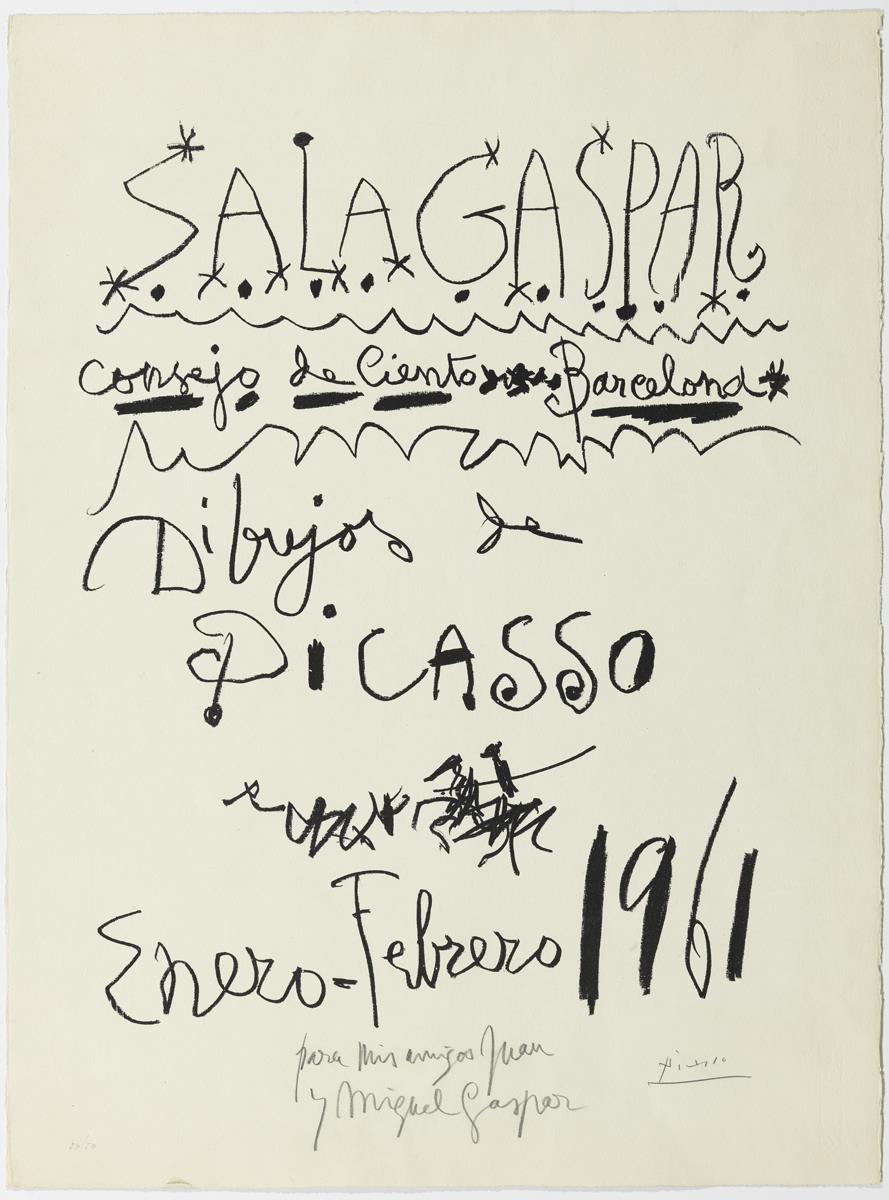 SALA GASPAR
Consejo de Ciento Barcelona
Dibujos de
PICASSO
Enero-Febrero 1961
para mis amigos Juan
y Miguel Gaspar
Picasso